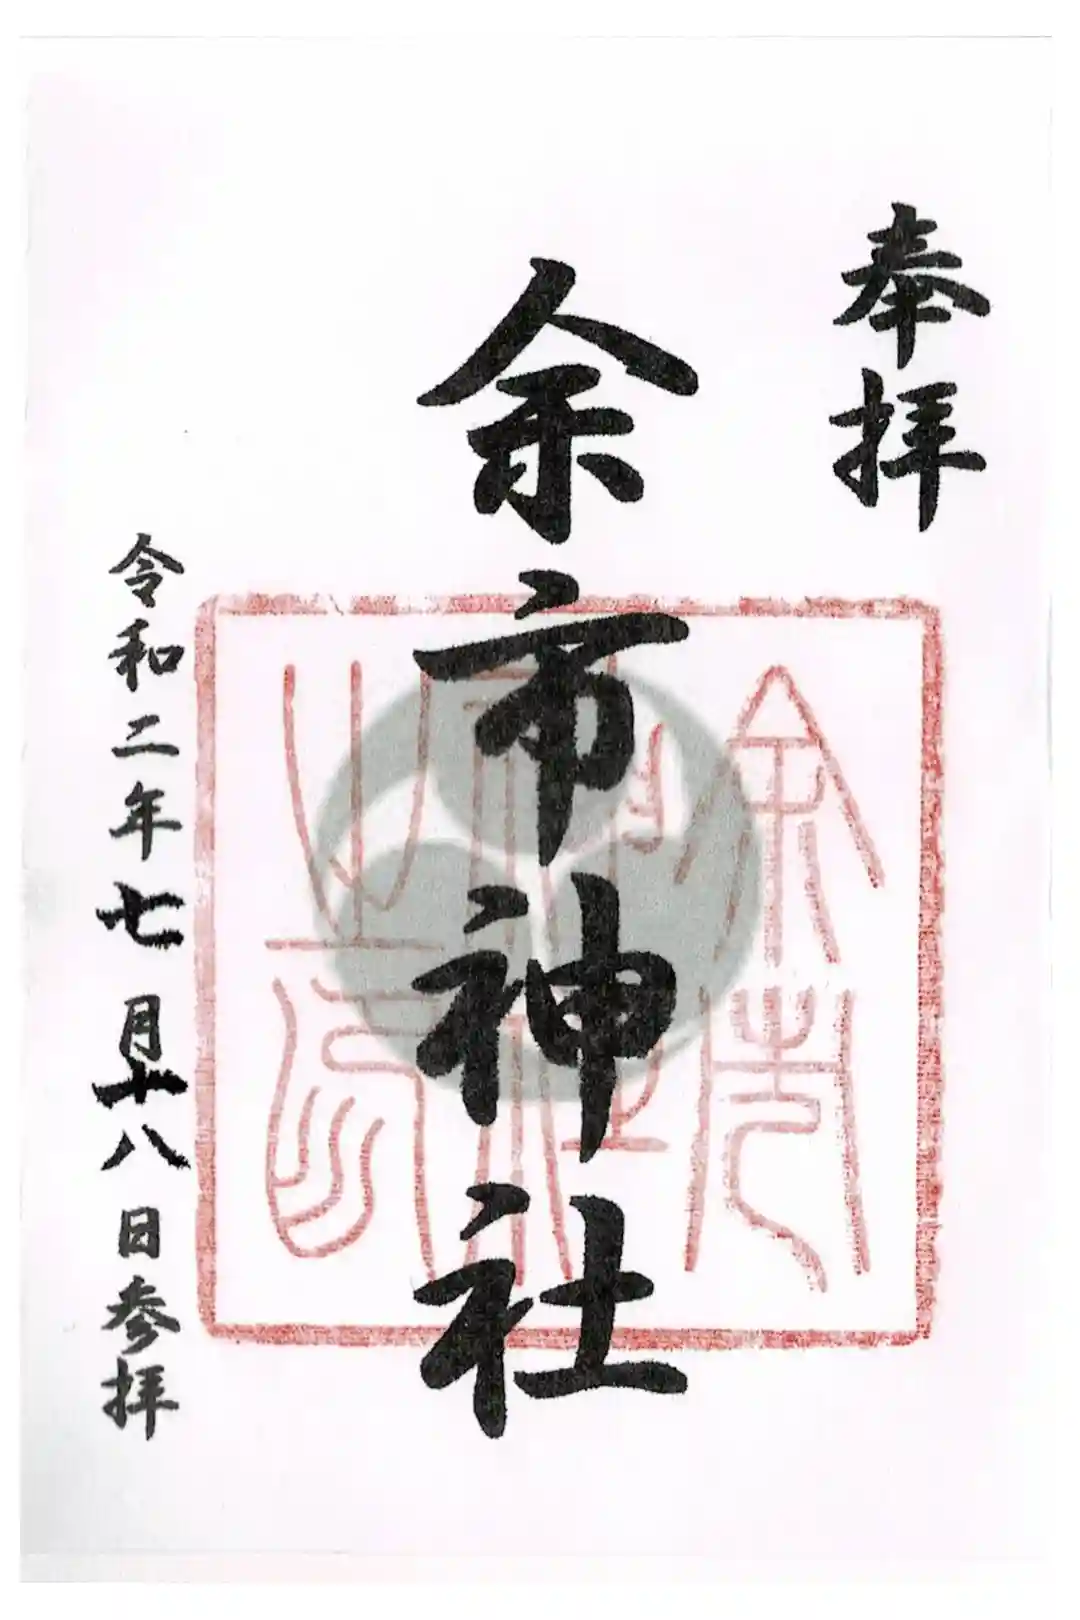 奉拝
余市神社
令和二年七月十八日参拝
余市神社之印